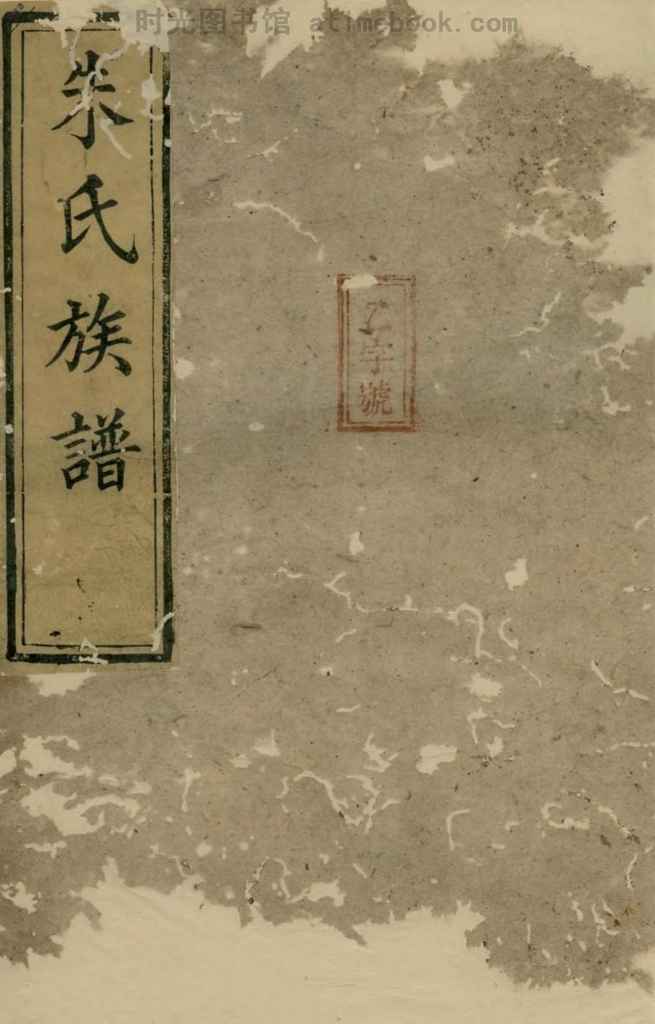 时光图书馆 atimebook.com
朱氏族譜
乙字號